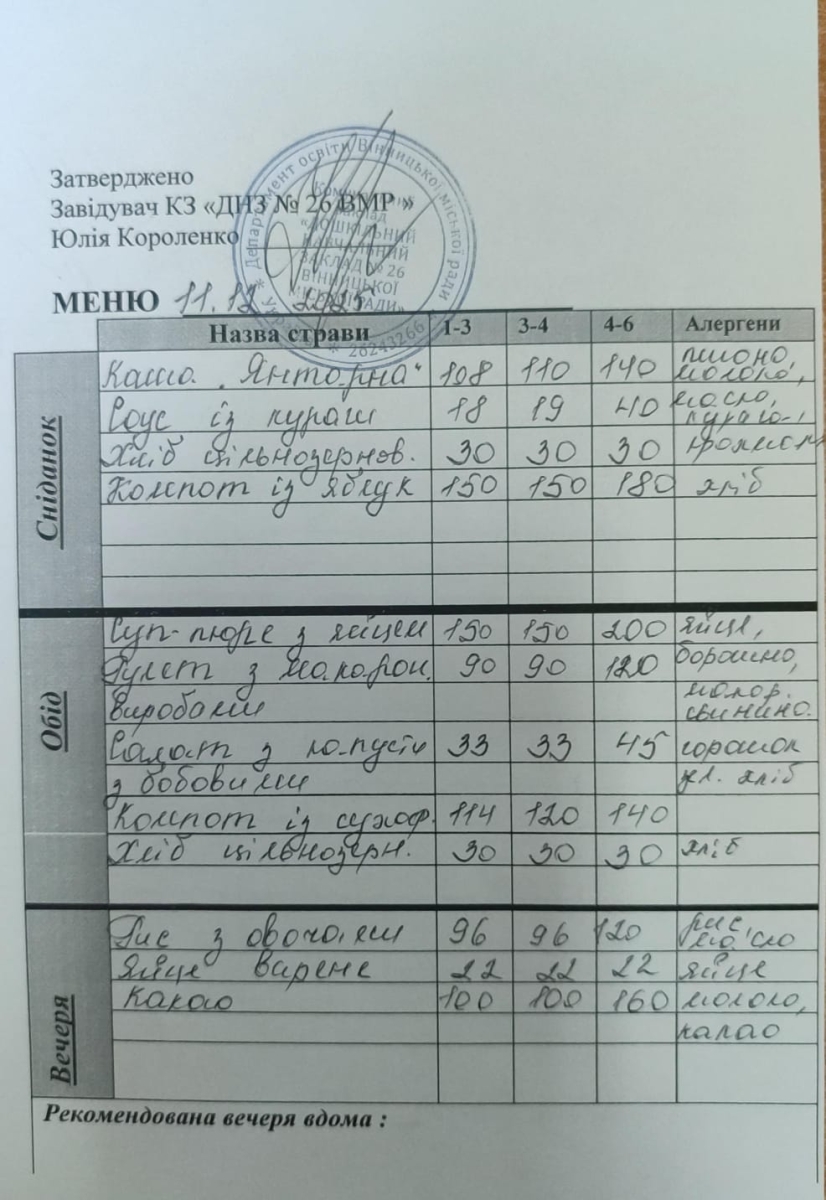 Затверджено
Завідувач КЗ «ДНЗ № 26 ВМР »
Юлія Короленко
Департамент освіти Вінницької міської ради
«ДОШКІЛЬНИЙ
НАВЧАЛЬНИЙ
ЗАКЛАД № 26
ВІННИЦЬКОЇ
26243266
МЕНЮ 11.12 2025
Назва страви 1-3 3-4 4-6 Алергени
Сніданок
Каша „Янтарна" 108 110 140 пшоно, молоко,
Соус із кураги 18 19 40 масло, курага,
Хліб цільнозернов. 30 30 30
Компот із яблук 150 150 180 хліб
Обід
Суп-пюре з яйцем 150 150 200 яйце,
Гулеш з макарон. 90 90 120 борошно,
виробами молор. свинина.
Салат з капусти 33 33 45 горошок
з бобовими хліб
Компот із сухоф. 114 120 140
Хліб цільнозерн. 30 30 30 хліб
Вечеря
Рис з овочами 96 96 120 рис, масло
Яйце варене 22 22 22 яйце
Какао 100 100 160 молоко,
какао
Рекомендована вечеря вдома :